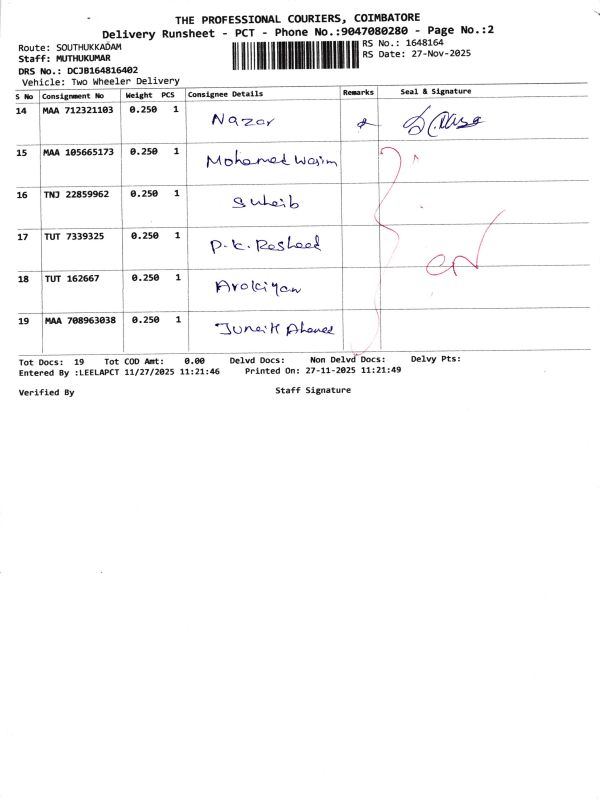 THE PROFESSIONAL COURIERS, COIMBATORE
Delivery Runsheet - PCT - Phone No.:9047080280 - Page No.:2
Route: SOUTHUKKADAM
RS No.: 1648164
Staff: MUTHUKUMAR
RS Date: 27-Nov-2025
DRS No.: DCJB164816402
Vehicle: Two Wheeler Delivery
S No Consignment No Weight PCS Consignee Details Remarks Seal & Signature
14 MAA 712321103 0.250 1 Nazar
15 MAA 105665173 0.250 1 Mohamed Wasim
16 TNJ 22859962 0.250 1 Suheib
17 TUT 7339325 0.250 1 P.K. Rasheed
18 TUT 162667 0.250 1 Arokiyan
19 MAA 708963038 0.250 1 Juneit Ahamed
Tot Docs: 19 Tot COD Amt: 0.00 Delvd Docs: Non Delvd Docs: Delvy Pts:
Entered By :LEELAPCT 11/27/2025 11:21:46 Printed On: 27-11-2025 11:21:49
Verified By Staff Signature